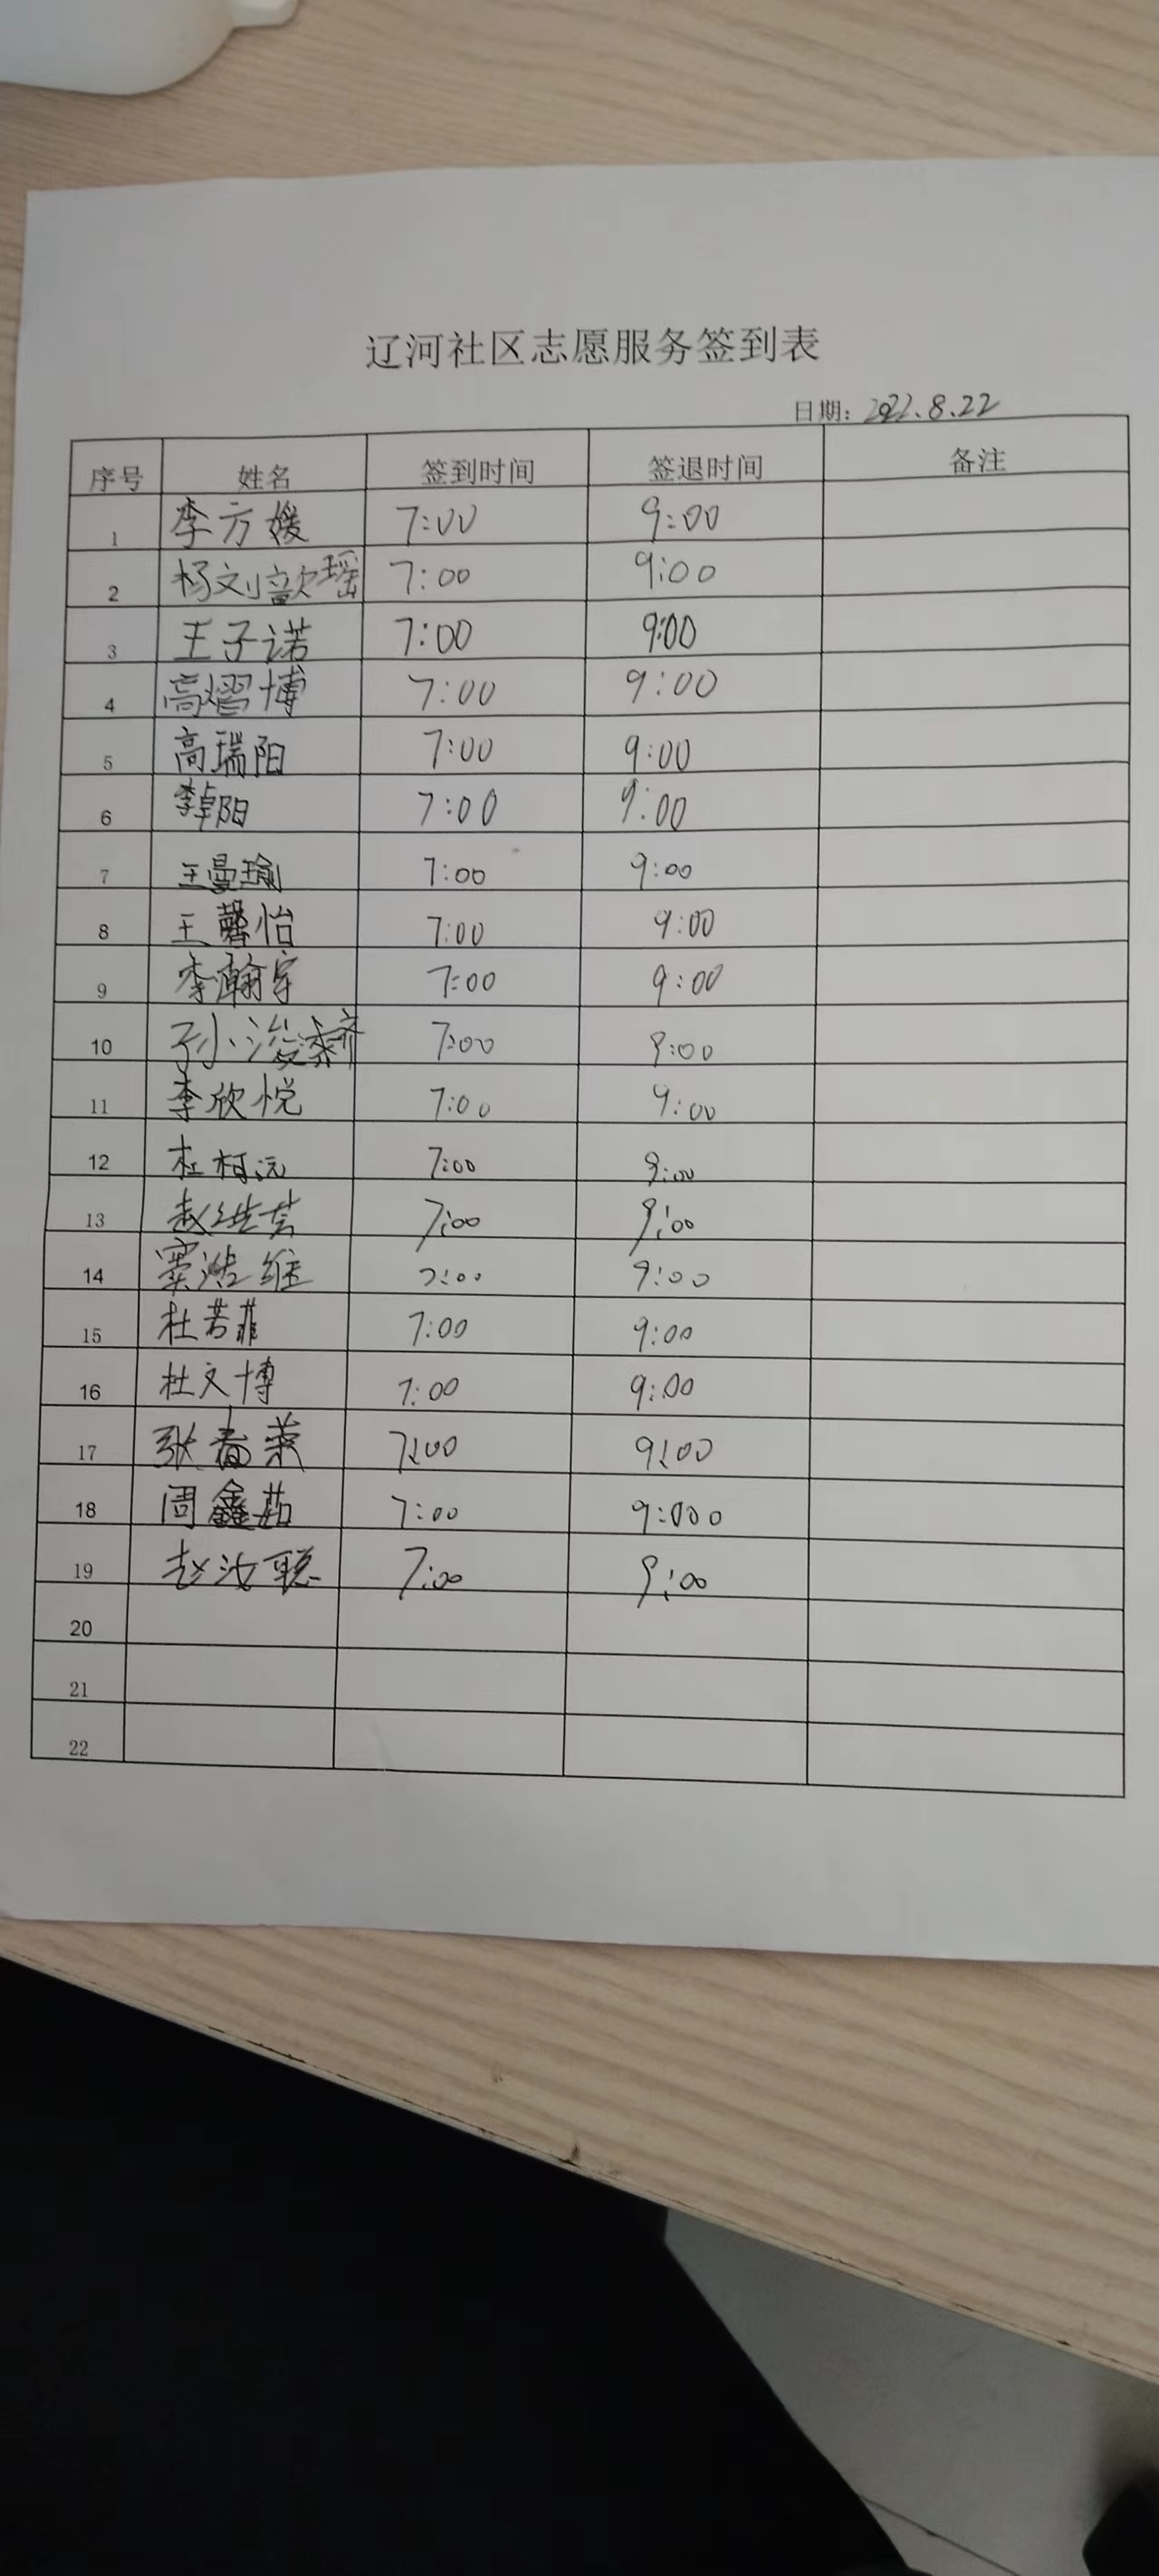 辽河社区志愿服务签到表
日期: 2022.8.22
序号 姓名 签到时间 签退时间 备注
1 李方媛 7:00 9:00
2 杨刘歆瑶 7:00 9:00
3 王子诺 7:00 9:00
4 高熠博 7:00 9:00
5 高瑞阳 7:00 9:00
6 李卓阳 7:00 9:00
7 王曼瑜 7:00 9:00
8 王馨怡 7:00 9:00
9 李瀚宇 7:00 9:00
10 孙浚 7:00 9:00
11 李欣悦 7:00 9:00
12 杜柯沅 7:00 9:00
13 赵 7:00 9:00
14 窦浩维 7:00 9:00
15 杜若菲 7:00 9:00
16 杜文博 7:00 9:00
17 张 7:00 9:00
18 周鑫茹 7:00 9:000
19 赵汝聪 7:00 9:00
20
21
22